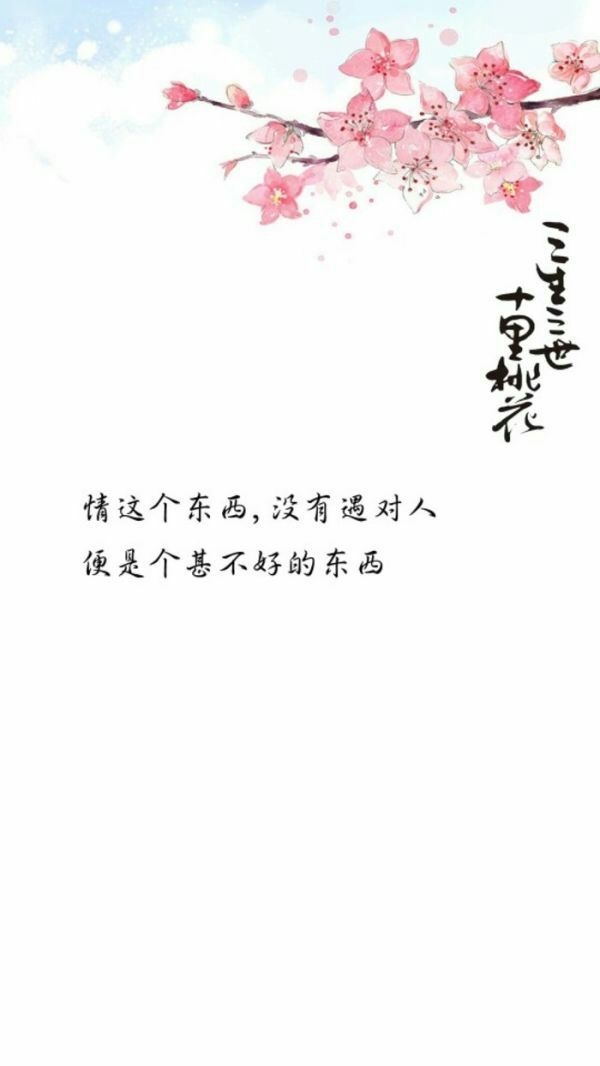 三生三世
十里桃花
情这个东西,没有遇对人
便是个甚不好的东西